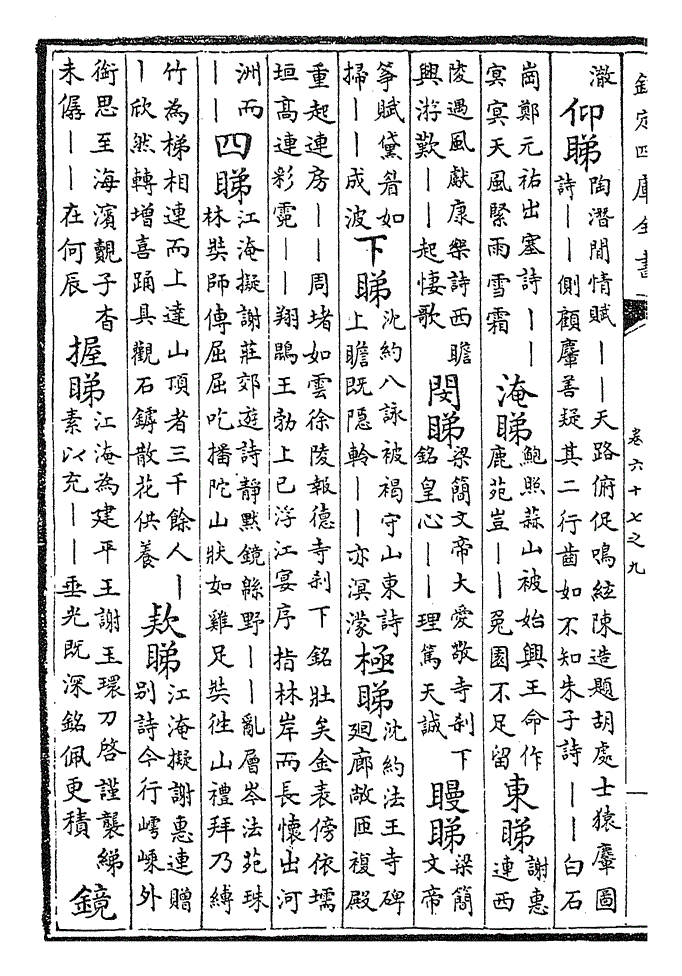 欽定四庫全書 卷六十七之九
澈
仰睇
陶潛閒情賦——天路俯促鳴絃陳造題胡處士猿麞圖
詩——側顧麞善疑其二行齒如不知朱子詩——白石
崗鄭元祐出塞詩——
冥冥天風緊雨雪霜
淹睇
鮑照蒜山被始興王命作
鹿苑豈——兔園不足留
東睇
謝惠
連西
陵遇風獻康樂詩西瞻
興游歎——起悽歌
閔睇
梁簡文帝大愛敬寺刹下
銘皇心——理篤天誠
睇
梁簡
文帝
箏賦黛眉如
掃——成波
下睇
沈約八詠被褐守山東詩
上瞻既隠軫——亦溟濛
極睇
沈約法王寺碑
廻廊敞匝複殿
重起連房——周堵如雲徐陵報德寺刹下銘壯矣金表傍依壖
垣高連彩霓——翔鵾王勃上巳浮江宴序指林岸而長懷出河
洲而
——
四睇
江淹擬謝莊郊遊詩靜默鏡緜野——亂層岑法苑珠
林奘師傳屈屈吃播陀山狀如雞足奘徃山禮拜乃縛
竹為梯相連而上達山頂者三千餘人—
—欣然轉增喜踊具觀石罅散花供養
款睇
江淹擬謝惠連贈
别詩今行嶀嵊外
銜思至海濱覿子杳
未僝——在何辰
握睇
江淹為建平王謝玉環刀啓謹襲綈
素以充——垂光既深銘佩更積
鏡